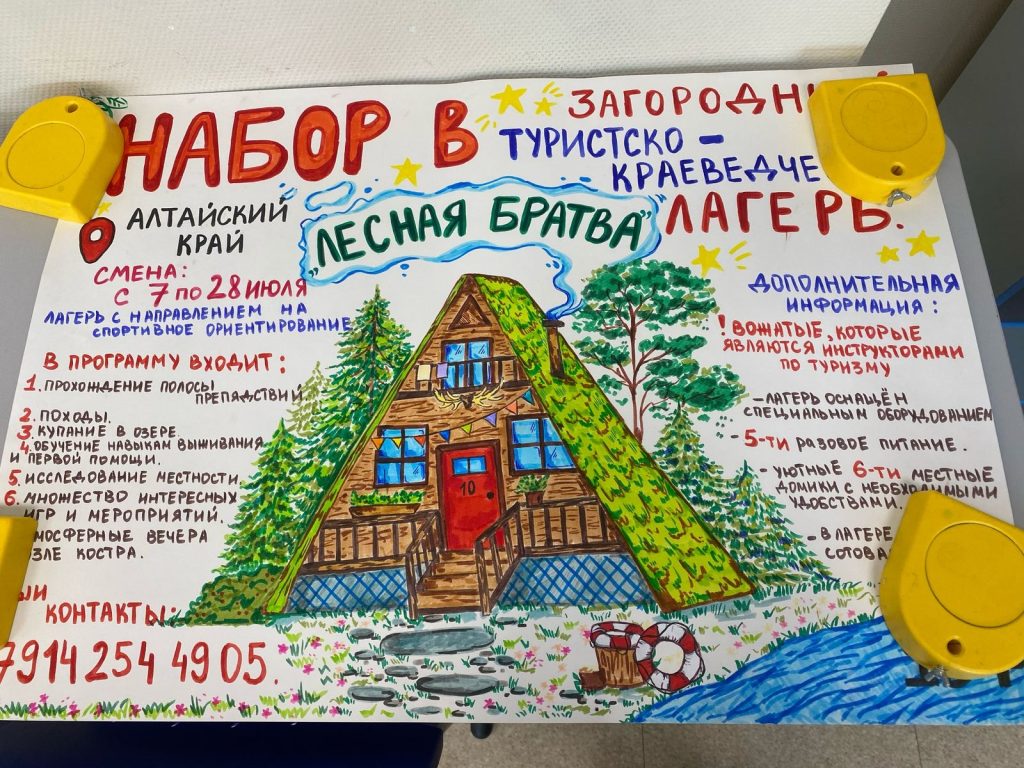 НАБОР В
ЗАГОРОДН
ТУРИСТСКО-
КРАЕВЕДЧЕ
ЛАГЕРЬ.
АЛТАЙСКИЙ
КРАЙ
„ЛЕСНАЯ БРАТВА”
СМЕНА:
С 7 ПО 28 ИЮЛЯ
ЛАГЕРЬ С НАПРАВЛЕНИЕМ НА
СПОРТИВНОЕ ОРИЕНТИРОВАНИЕ
В ПРОГРАММУ ВХОДИТ:
1. ПРОХОЖДЕНИЕ ПОЛОСЫ
ПРЕПАДСТВИЙ
2. ПОХОДЫ.
3. КУПАНИЕ В ОЗЕРЕ.
4. ОБУЧЕНИЕ НАВЫКАМ ВЫЖИВАНИЯ
И ПЕРВОЙ ПОМОЩИ.
5. ИССЛЕДОВАНИЕ МЕСТНОСТИ.
6. МНОЖЕСТВО ИНТЕРЕСНЫХ
ИГР И МЕРОПРИЯТИЙ.
МОСФЕРНЫЕ ВЕЧЕРА
ЗЛЕ КОСТРА.
ШИ
КОНТАКТЫ:
7914 254 49 05.
10
ДОПОЛНИТЕЛЬНАЯ
ИНФОРМАЦИЯ:
! ВОЖАТЫЕ, КОТОРЫЕ
ЯВЛЯЮТСЯ ИНСТРУКТОРАМИ
ПО ТУРИЗМУ
- ЛАГЕРЬ ОСНАЩЁН
СПЕЦИАЛЬНЫМ ОБОРУДОВАНИЕМ
- 5-ТИ РАЗОВОЕ ПИТАНИЕ.
- УЮТНЫЕ 6-ТИ МЕСТНЫЕ
ДОМИКИ С НЕОБХОДИМЫМИ
УДОБСТВАМИ.
- В ЛАГЕРЕ
СОТОВА